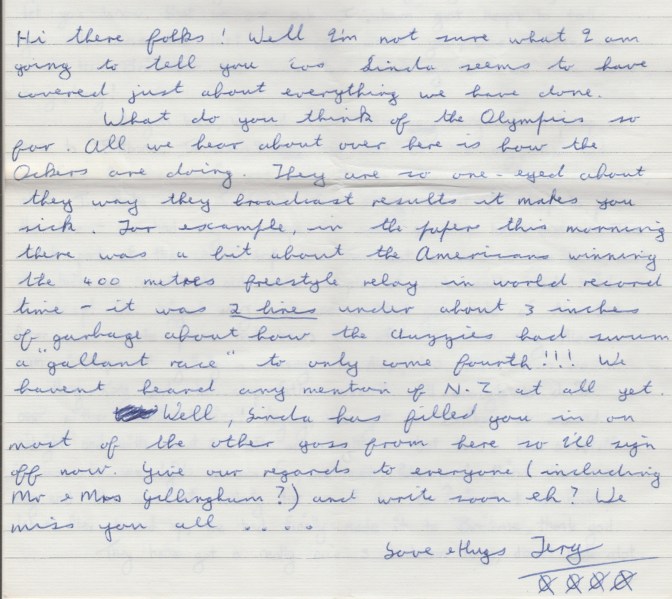 Hi there folks! Well I'm not sure what I am
going to tell you cos Linda seems to have
covered just about everything we have done.
What do you think of the Olympics so
far. All we hear about over here is how the
Ockers are doing. They are so one-eyed about
they way they broadcast results it makes you
sick. For example, in the paper this morning
there was a bit about the Americans winning
the 400 metres freestyle relay in world record
time - it was 2 lines under about 3 inches
of garbage about how the Auzzies had swum
a "gallant race" to only come fourth!!! We
havent heard any mention of N.Z. at all yet.
Well, Linda has filled you in on
most of the other goss from here so I'll sign
off now. Give our regards to everyone (including
Mr & Mrs Gillingham?) and write soon eh? We
miss you all ....
Love & Hugs Terg
XXXX